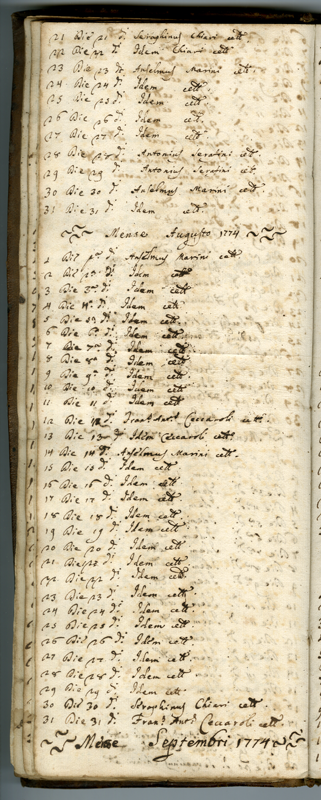 21 Die 21 di Seraphinus Chiari cell.
22 Die 22 di Idem Chiari cell
23 Die 23 di. Anselmus Marini cell.
24 Die 24 di Idem cell.
25 Die 25 di. Idem cell.
26 Die 26 di. Idem cell.
27 Die 27 di. Idem cell.
28 Die 28 di. Antonius Serafini cell.
29 Die 29 di Antonius Serafini cell.
30 Die 30 di. Anselmus Marini cell.
31 Die 31 di Idem cell.
Mense Augusto 1774
1 Die pa di. Anselmus Marini cell
2 Die 2a di. Idem cell
3 Die 3a di. Idem cell
4 Die 4a di. Idem cell
5 Die 5a di. Idem cell.
6 Die 6a di. Idem cell
7 Die 7a di. Idem cell
8 Die 8a di. Idem cell
9 Die 9a di. Idem cell
10 Die 10 di. Idem cell
11 Die 11 di. Idem cell
12 Die 12 di. Franc. Ant. Ceccaroli cell.
13 Die 13 di Idem Ceccaroli cell.
14 Die 14 di. Anselmus Marini cell.
15 Die 15 di. Idem cell
16 Die 16 di. Idem cell.
17 Die 17 di. Idem cell
18 Die 18 di. Idem cell
19 Die 19 di. Idem cell
20 Die 20 di. Idem cell
21 Die 21 di. Idem cell
22 Die 22 di. Idem cell
23 Die 23 di. Idem cell.
24 Die 24 di. Idem cell
25 Die 25 di. Idem cell
26 Die 26 di. Idem cell
27 Die 27 di. Idem cell
28 Die 28 di. Idem cell
29 Die 29 di Idem cell.
30 Die 30 di. Seraphinus Chiari cell.
31 Die 31 di. Franc. Ant. Ceccaroli cell
Mense Septembri 1774